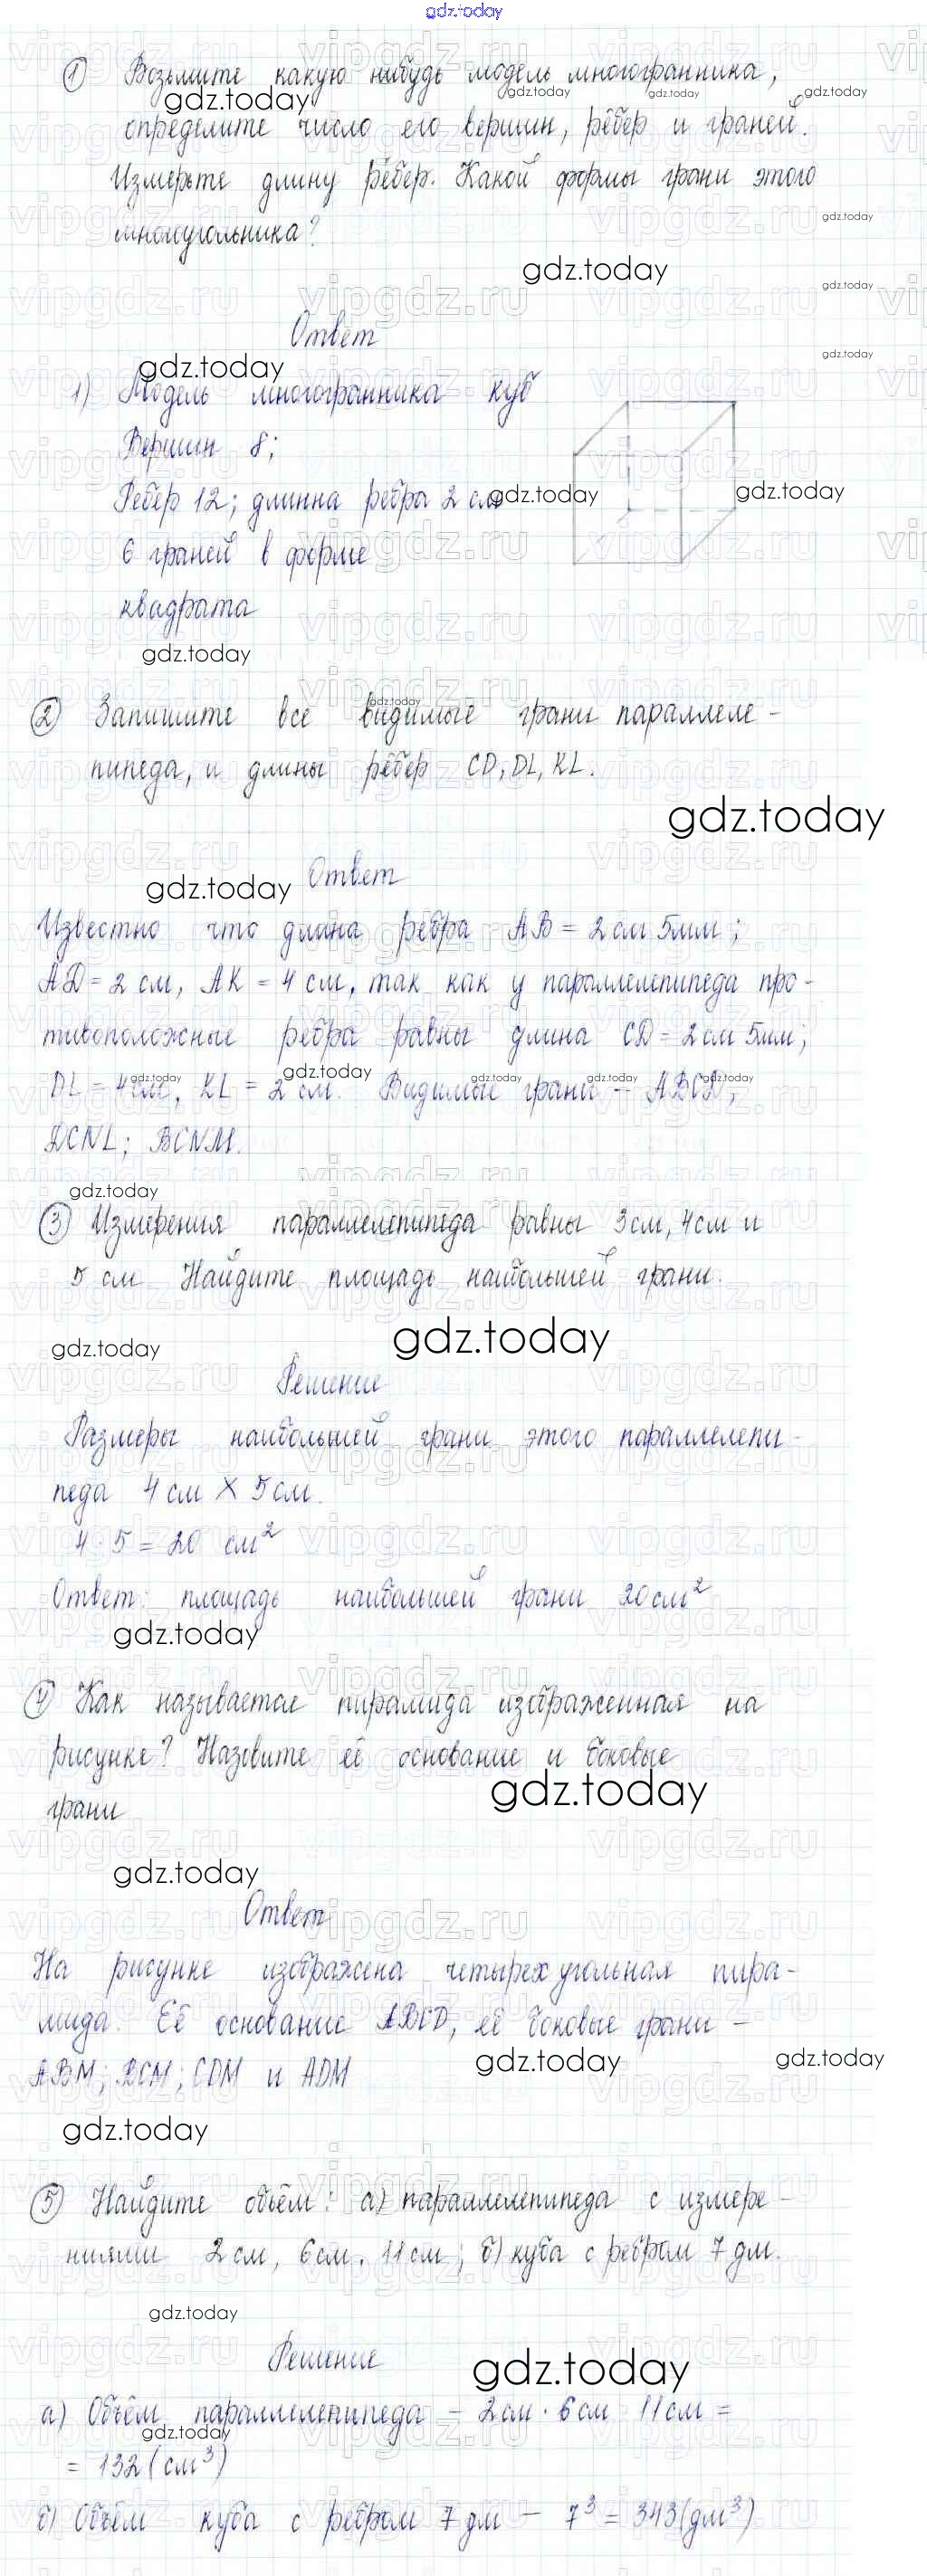 gdz.today
① Возьмите какую нибудь модель многогранника,
определите число его вершин, рёбер и граней.
Измерьте длину рёбер. Какой формы грани этого
многоугольника?
Ответ
1) Модель многогранника куб
Вершин 8;
Рёбер 12; длинна ребра 2 см
6 граней в форме
квадрата
② Запишите все видимые грани параллеле-
пипеда, и длины рёбер CD, DL, KL.
Ответ
Известно что длина ребра AB = 2 см 5мм;
AD = 2 см, AK = 4 см, так как у параллелепипеда про-
тивоположные ребра равны длина CD = 2 см 5мм;
DL = 4 см, KL = 2 см. Видимые грани - ABCD;
DCNL; BCNM.
③ Измерения параллелепипеда равны 3см, 4см и
5 см Найдите площадь наибольшей грани.
Решение
Размеры наибольшей грани этого параллелепи-
педа 4 см X 5 см.
4 · 5 = 20 см²
Ответ: площадь наибольшей грани 20 см²
④ Как называется пирамида изображенная на
рисунке? Назовите её основание и боковые
грани
Ответ
На рисунке изображена четырехугольная пира-
мида. Её основание ABCD, её боковые грани -
ABM; BCM; CDM и ADM
⑤ Найдите объём: а) параллелепипеда с измере-
ниями 2см, 6см, 11см; б) куба с ребром 7 дм.
Решение
а) Объём параллеленипеда - 2см · 6см 11см =
= 132 (см³)
б) Объём куба с ребром 7 дм - 7³ = 343 (дм³)